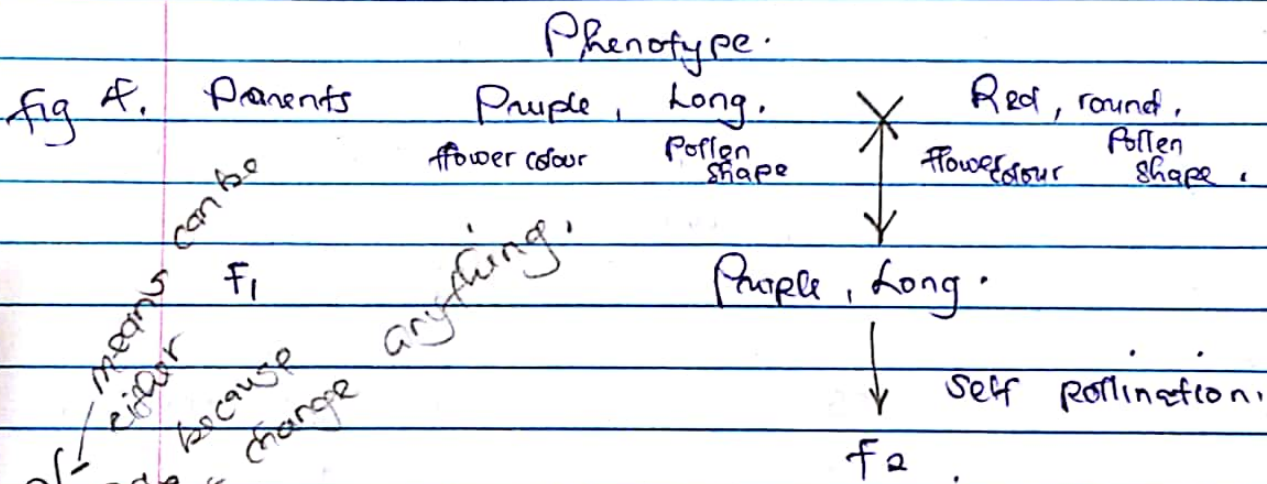 Phenotype.
fig 4. Parents Pruple, Long. Red, round.
flower colour Pollen shape flower colour Pollen shape.
F1 Pruple, Long.
self pollination.
F2
means can be
either
because anything.
change